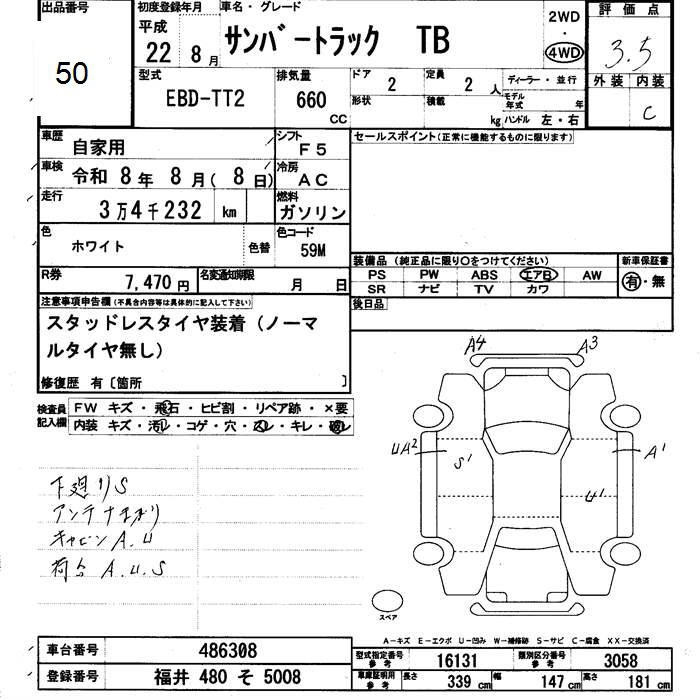 出品番号 初度登録年月 車名・グレード 2WD 評価点
50 平成 22 8月 サンバートラック TB ・ 4WD 3.5
外装 内装
C
型式 排気量 ドア 2 定員 2人 ディーラー・並行
EBD-TT2 660 CC 形状 積載 kg モデル年式 年
ハンドル 左・右
車歴 自家用 シフト F5 セールスポイント(正常に機能するものに限ります)
車検 令和 8年 8月(8日) 冷房 AC
走行 3万4千232 km 燃料 ガソリン
色 ホワイト 色替 色コード 59M
装備品 (純正品に限り○をつけてください) 新車保証書
PS PW ABS エアB AW 有・無
SR ナビ TV カワ
R券 7,470円 名変通知期限 月 日
後日品
注意事項申告欄(不具合内容等は具体的に記入して下さい)
スタッドレスタイヤ装着(ノーマ
ルタイヤ無し)
修復歴 有〔箇所 〕
検査員記入欄 FW キズ・飛石・ヒビ割・リペア跡・×要
内装 キズ・汚レ・コゲ・穴・スレ・キレ・破レ
A4 A3
UA2 S1 U1 A1
下廻りS
アンテナまがり
キャビンA.U
荷台A.U.S
スペア
A-キズ E-エクボ U-凹み W-補修跡 S-サビ C-腐食 XX-交換済
車台番号 486308
登録番号 福井 480 そ 5008
型式指定番号 参考 16131 類別区分番号 参考 3058
車庫証明用 参考 長さ 339cm 幅 147cm 高さ 181cm